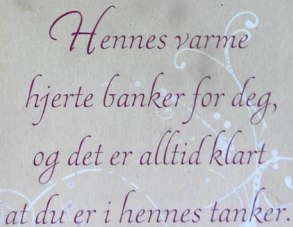 Hennes varme
hjerte banker for deg,
og det er alltid klart
at du er i hennes tanker.